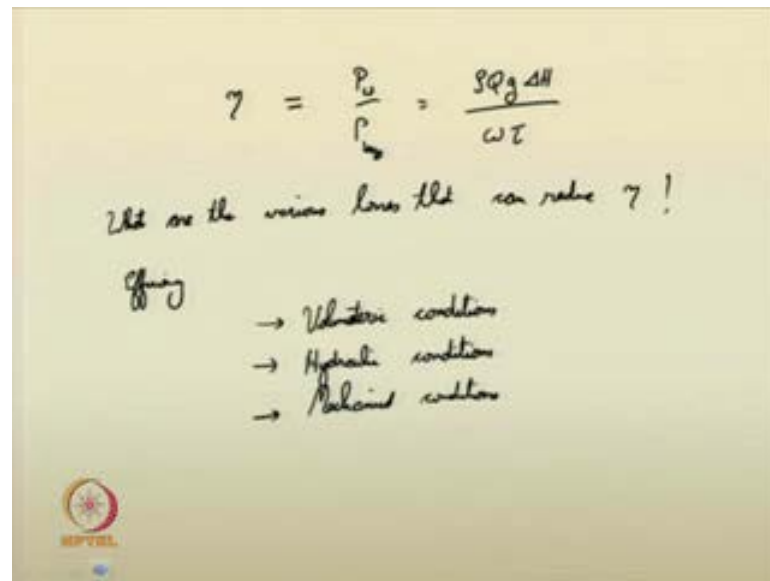 η = P_w / P_in = ρQgΔH / ωτ
What are the various losses that can reduce η !
Efficiency
→ Volumetric conditions
→ Hydraulic conditions
→ Mechanical conditions
NPTEL